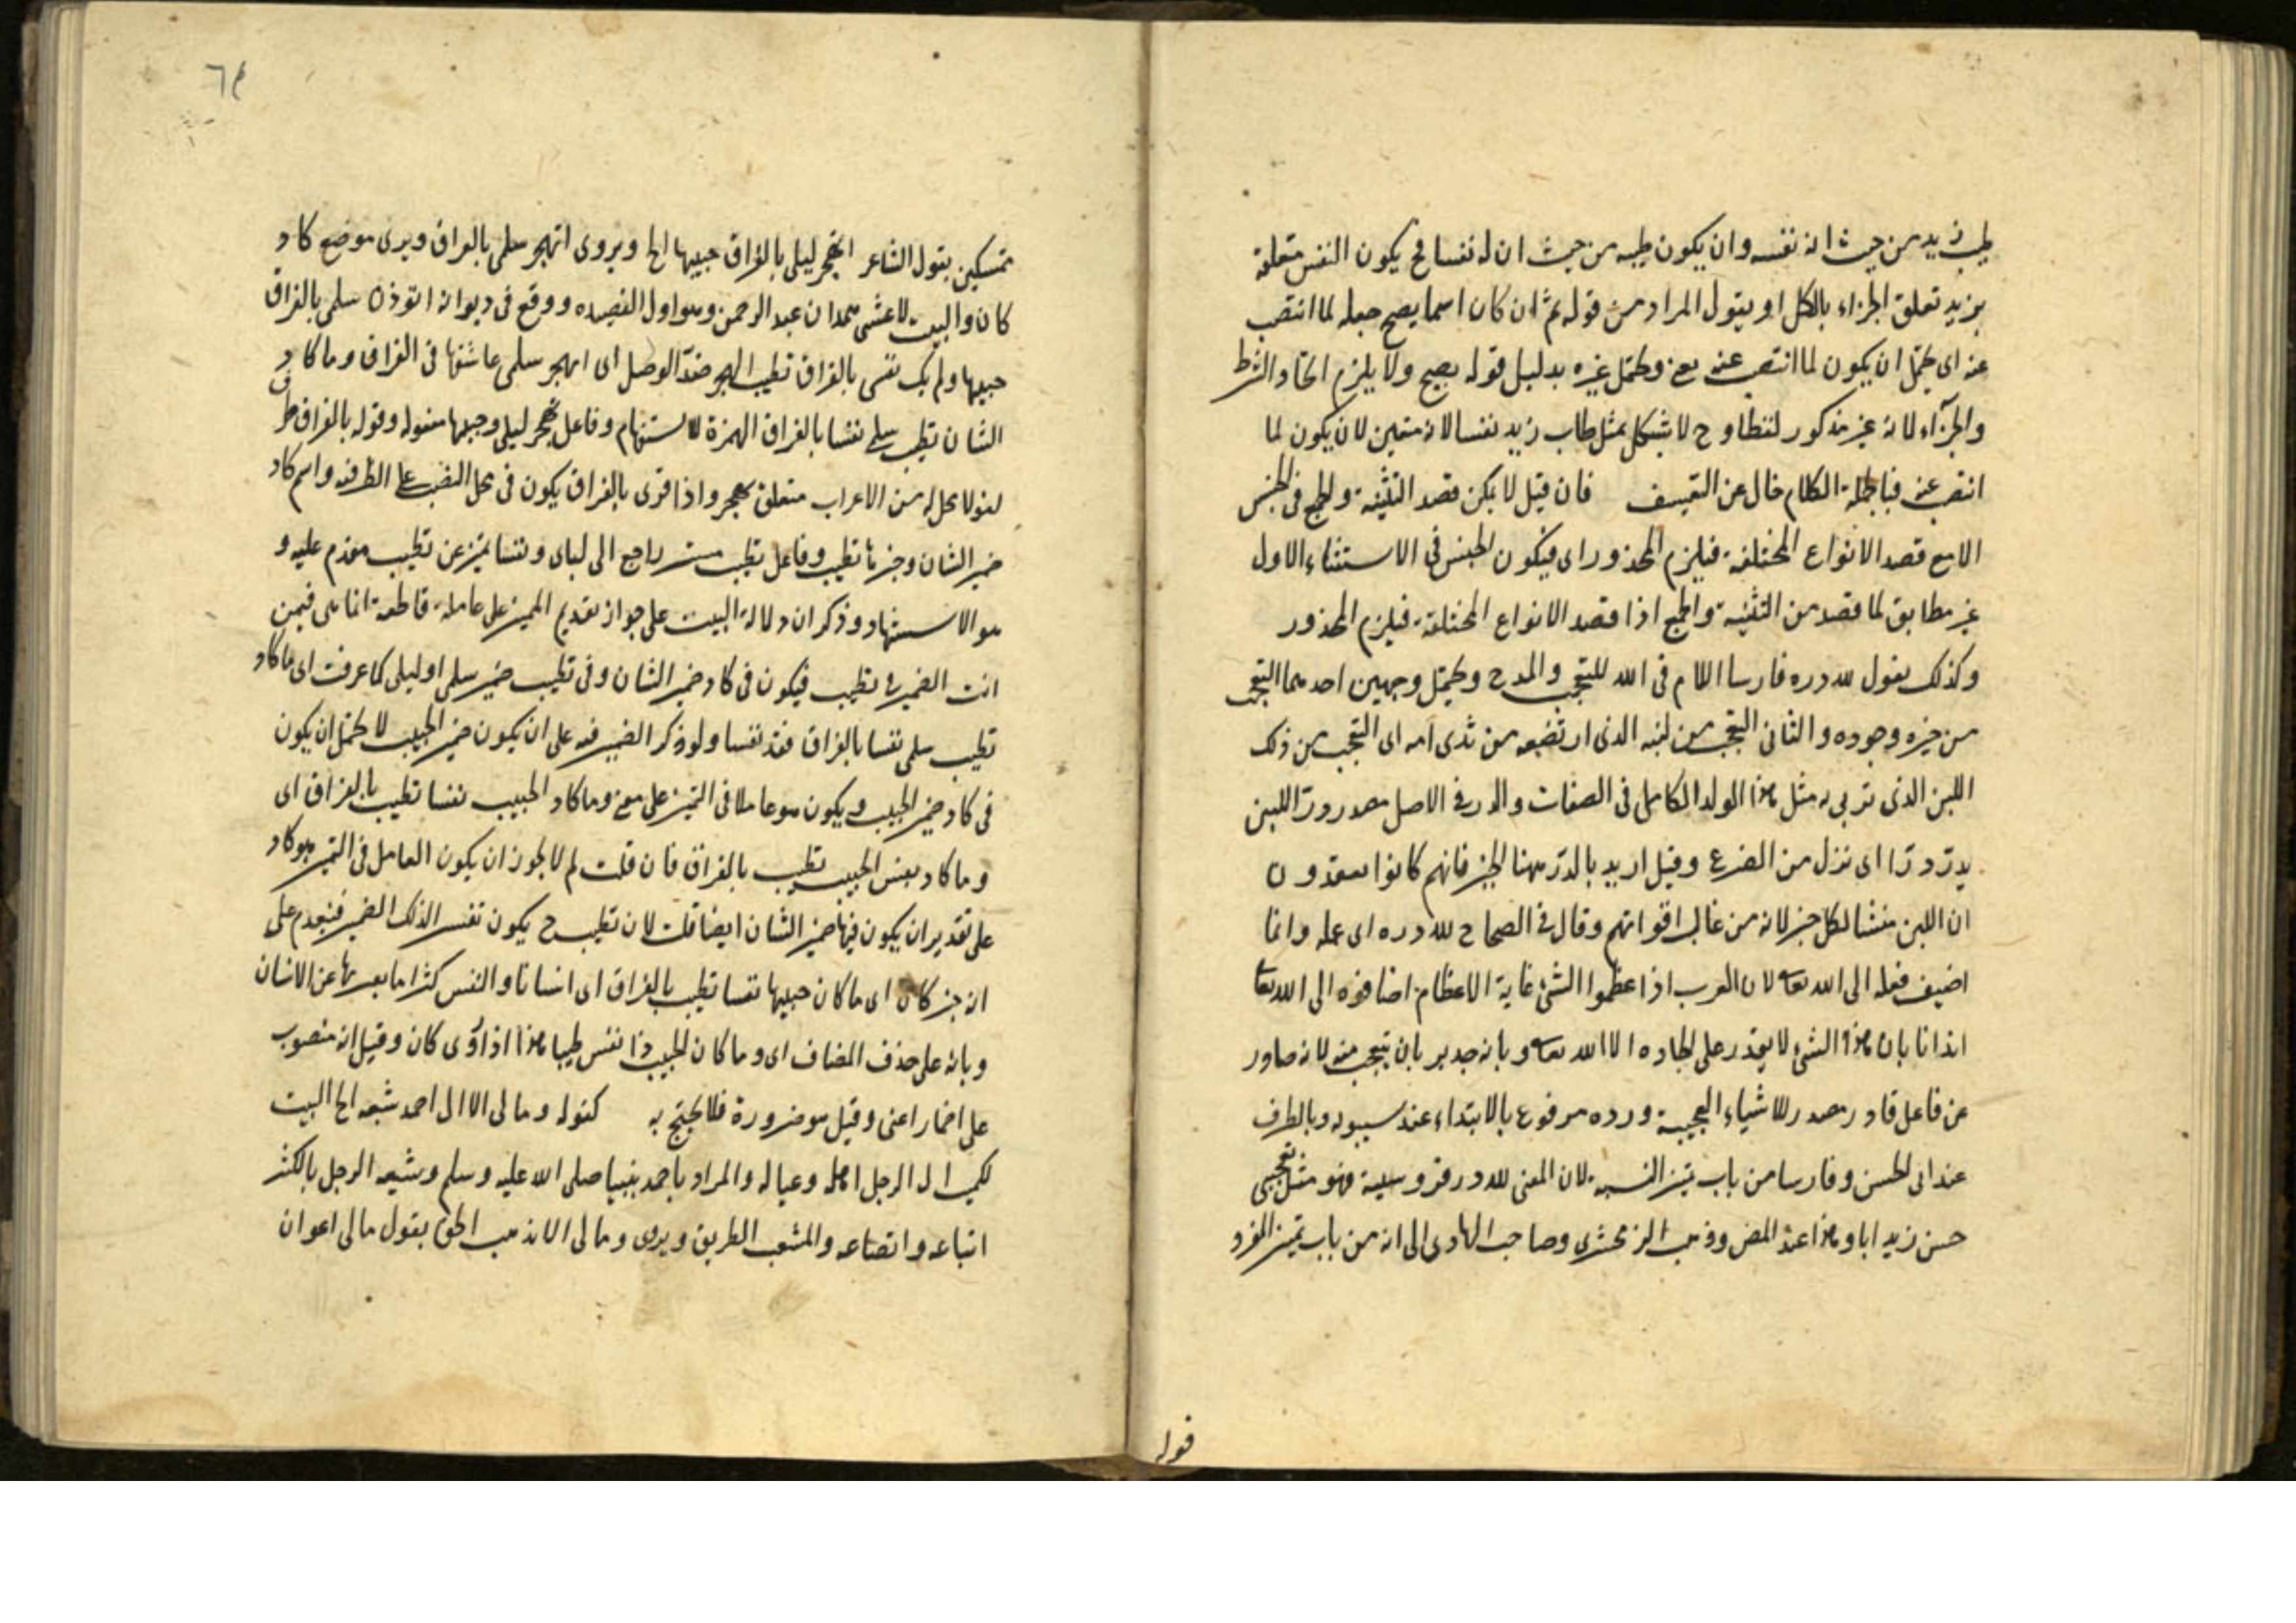 طيب زيد من حيث انه نفسه وان يكون طيبه من حيث ان له نفسا فح يكون النفس متعلقة
بزيد تعلق الجزء بالكل او يقول المراد من قوله ثم ان كان اسما يصح جعله لما انتصب
عنه اى يحتمل ان يكون لما انتصب عنه يعنى ويحتمل غيره بدليل قوله يصح ولا يلزم اتحاد الشرط
والجزآء لانه غير مذكور لفظا وح لا يشكل بمثل طاب زيد نفسا لانه متعين لان يكون لما
انتصب عنه فبالجملة الكلام خال عن التعسف فان قيل لا يمكن قصد التثنية والجمع فى الجنس
الا مع قصد الانواع المختلفة فيلزم المحذور اى فيكون الجنس فى الاستثناء الاول
غير مطابق لما قصد من التثنية والجمع اذا قصد الانواع المختلفة فيلزم المحذور
وكذلك يقول لله دره فارسا اللام فى الله للتعجب والمدح ويحتمل وجهين احدهما التعجب
من خيره وجوده والثانى التعجب من لبنه الذى ارتضعه من ثدى امه اى التعجب من ذلك
اللبن الذى تربى به مثل هذا الولد الكامل فى الصفات والدر فى الاصل مصدر درّ اللبن
يدرّ درّا اى نزل من الضرع وقيل اريد بالدرّ ههنا الخير فانهم كانوا يعتقدون
ان اللبن منشا لكل خير لانه من غالب اقواتهم وقال فى الصحاح لله دره اى عمله وانما
اضيف فعله الى الله تعا لان العرب اذا عظموا الشئ غاية الاعظام اضافوه الى الله تعا
ايذانا بان هذا الشئ لا يقدر على ايجاده الا الله تعا وبانه جدير بان يتعجب منه لانه صادر
عن فاعل قادر مصدر للاشياء العجيبة ودره مرفوع بالابتداء عند سيبويه وبالظرف
عند ابى الحسن وفارسا من باب تميز النسبة لان المعنى لله در فروسية فهو مثل يعجبنى
حسن زيد ابا وهذا عند المص وذهب الزمخشرى وصاحب الهادى الى انه من باب تميز المفرد
قوله
٦٤
تمسكين بقول الشاعر اتهجر ليلى بالفراق حبيبها الخ ويروى اتهجر سلمى بالفراق ويرى موضع كاد
كان والبيت لاعشى همدان عبد الرحمن وهو اول القصيده ووقع فى ديوانه اتوذن سلمى بالفراق
حبيبها ولم يك نفسى بالفراق تطيب الهجر ضد الوصل اى اتهجر سلمى عاشقها فى الفراق وما كاد
الشان تطيب سلمى نفسا بالفراق الهمزة للاستفهام وفاعل تهجر ليلى وحبيبها مفعوله وقوله بالفراق ظرف
لغو لا محل له من الاعراب متعلق بتهجر واذا قرى بالفراق يكون فى محل النصب على الظرفية واسم كاد
ضمير الشان وخبرها تطيب وفاعل تطيب مستتر راجع الى ليلى ونفسا تميز عن تطيب مقدم عليه و
هو الاستشهاد وذكر ان دلالة البيت على جواز تقديم المميز على عامله قاطعة انما هى فيمن
انث الضمير فى تطيب فيكون فى كاد ضمير الشان وفى تطيب ضمير سلمى او ليلى كما عرفت اى ما كاد
تطيب سلمى نفسا بالفراق فقدّ نفسا ولو ذكر الضمير فيه على ان يكون ضمير الحبيب لا يحتمل ان يكون
فى كاد ضمير الحبيب ويكون هو عاملا فى التميز على معنى وما كاد الحبيب نفسا تطيب بالفراق اى
وما كاد نفس الحبيب تطيب بالفراق فان قلت لم لا يجوز ان يكون العامل فى التميز هو كاد
على تقدير ان يكون فيها ضمير الشان ايضا قلت لان تطيب ح يكون تفسير الذلك الضمير فيتقدم على
انه خبر كان اى ما كان حبيبها نفسا تطيب بالفراق اى انسانا والنفس كثرا ما يعبر بها عن الانسان
وبانه على حذف المضاف اى وما كان الحبيب ذا نفس طيبا هذا اذا روى كان وقيل انه منصوب
على اضمار اعنى وقيل هو ضرورة فلا يحتج به كقوله وما لى الا ال احمد شيعة الخ البيت
لكميت ال الرجل اهله وعياله والمراد باحمد نبينا صلى الله عليه وسلم وشيعة الرجل بالكسر
اتباعه وانصاعه والمشعب الطريق ويروى وما لى الا مذهب الحق يقول ما لى اعوان